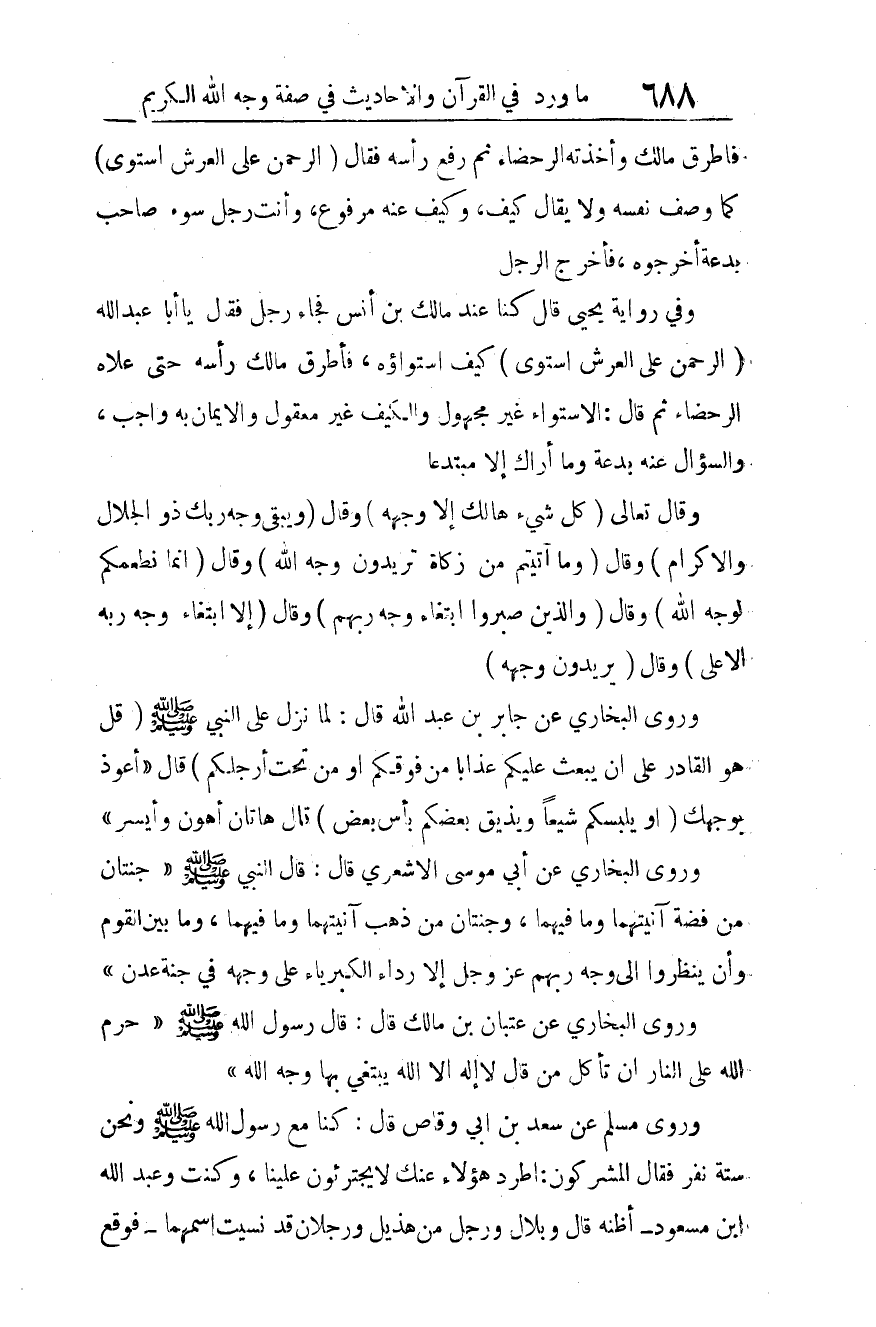 ٦٨٨ ما ورد في القرآن والاحاديث في صفة وجه الله الكريم
فاطرق مالك وأخذته الرحضاء ثم رفع رأسه فقال ( الرحمن على العرش استوى )
كما وصف نفسه ولا يقال كيف، وكيف عنه مرفوع، وأنت رجل سوء صاحب
بدعة أخرجوه ،فأخرج الرجل
وفي رواية يحيى قال كنا عند مالك بن أنس فجاء رجل فقال يا أبا عبدالله
( الرحمن على العرش استوى ) كيف استواؤه ، فأطرق مالك رأسه حتى علاه
الرحضاء ثم قال : الاستواء غير مجهول والكيف غير معقول والايمان به واجب ،
والسؤال عنه بدعة وما أراك إلا مبتدعا
وقال تعالى ( كل شيء هالك إلا وجهه ) وقال ( ويبقى وجه ربك ذو الجلال
والاكرام ) وقال ( وما آتيتم من زكاة تريدون وجه الله ) وقال ( انما نطعمكم
لوجه الله ) وقال ( والذين صبروا ابتغاء وجه ربهم ) وقال ( إلا ابتغاء وجه ربه
الاعلى ) وقال ( يريدون وجهه )
وروى البخاري عن جابر بن عبد الله قال : لما نزل على النبي ﷺ ( قل
هو القادر على ان يبعث عليكم عذابا من فوقكم او من تحت أرجلكم ) قال « أعوذ
بوجهك ( او يلبسكم شيعاً ويذيق بعضكم بأس بعض ) قال هاتان أهون وأيسر »
وروى البخاري عن أبي موسى الاشعري قال : قال النبي ﷺ « جنتان
من فضة آنيتهما وما فيهما ، وجنتان من ذهب آنيتهما وما فيهما ، وما بين القوم
وأن ينظروا الى وجه ربهم عز وجل إلا رداء الكبرياء على وجهه في جنة عدن »
وروى البخاري عن عتبان بن مالك قال : قال رسول الله ﷺ « حرم
الله على النار ان تأكل من قال لاإله الا الله يبتغي بها وجه الله »
وروى مسلم عن سعد بن ابي وقاص قال : كنا مع رسول الله ﷺ ونحن
ستة نفر فقال المشركون: اطرد هؤلاء عنك لايجترئون علينا ، وكنت وعبد الله
ابن مسعود ـ أظنه قال وبلال ورجل من هذيل ورجلان قد نسيت اسمهما ـ فوقع